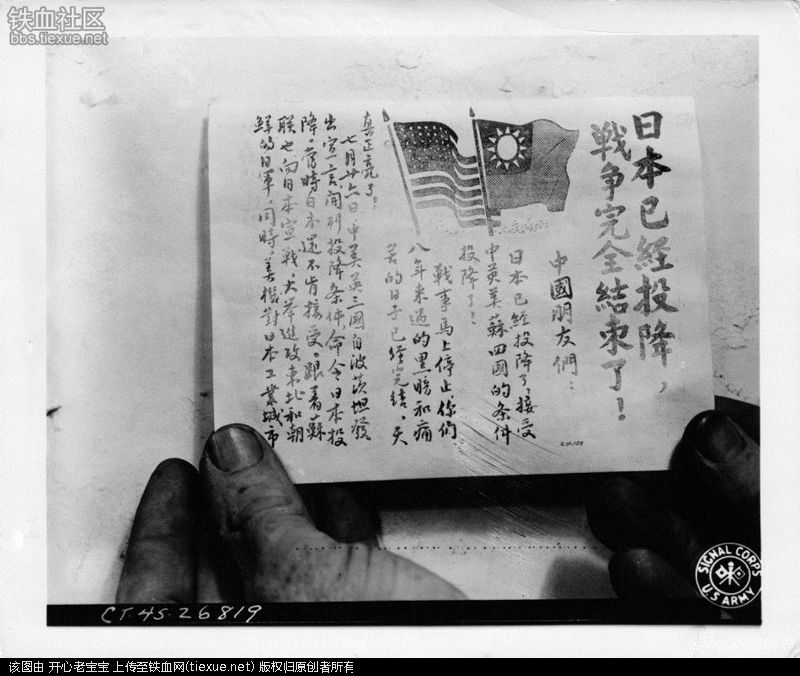 铁血社区
bbs.tiexue.net
日本已经投降，
戰争完全結束了！
中國朋友們：
日本已經投降了接受
中英美蘇四國的条件
投降了！
戰事馬上停止你們
八年来過的黑暗和痛
苦的日子已經完結，天
真正亮了！
七月廿六日中美英三國自波茨坦發
出宣言開列投降条件，命令日本投
降。當時日本還不肯接受。跟着蘇
联也向日本宣戰，大举進攻東北和朝
鮮的日軍，同時，美機對日本工業城市
C.H.129
SIGNAL CORPS
U.S. ARMY
CT.45-26819
该图由 开心老宝宝 上传至铁血网(tiexue.net) 版权归原创者所有